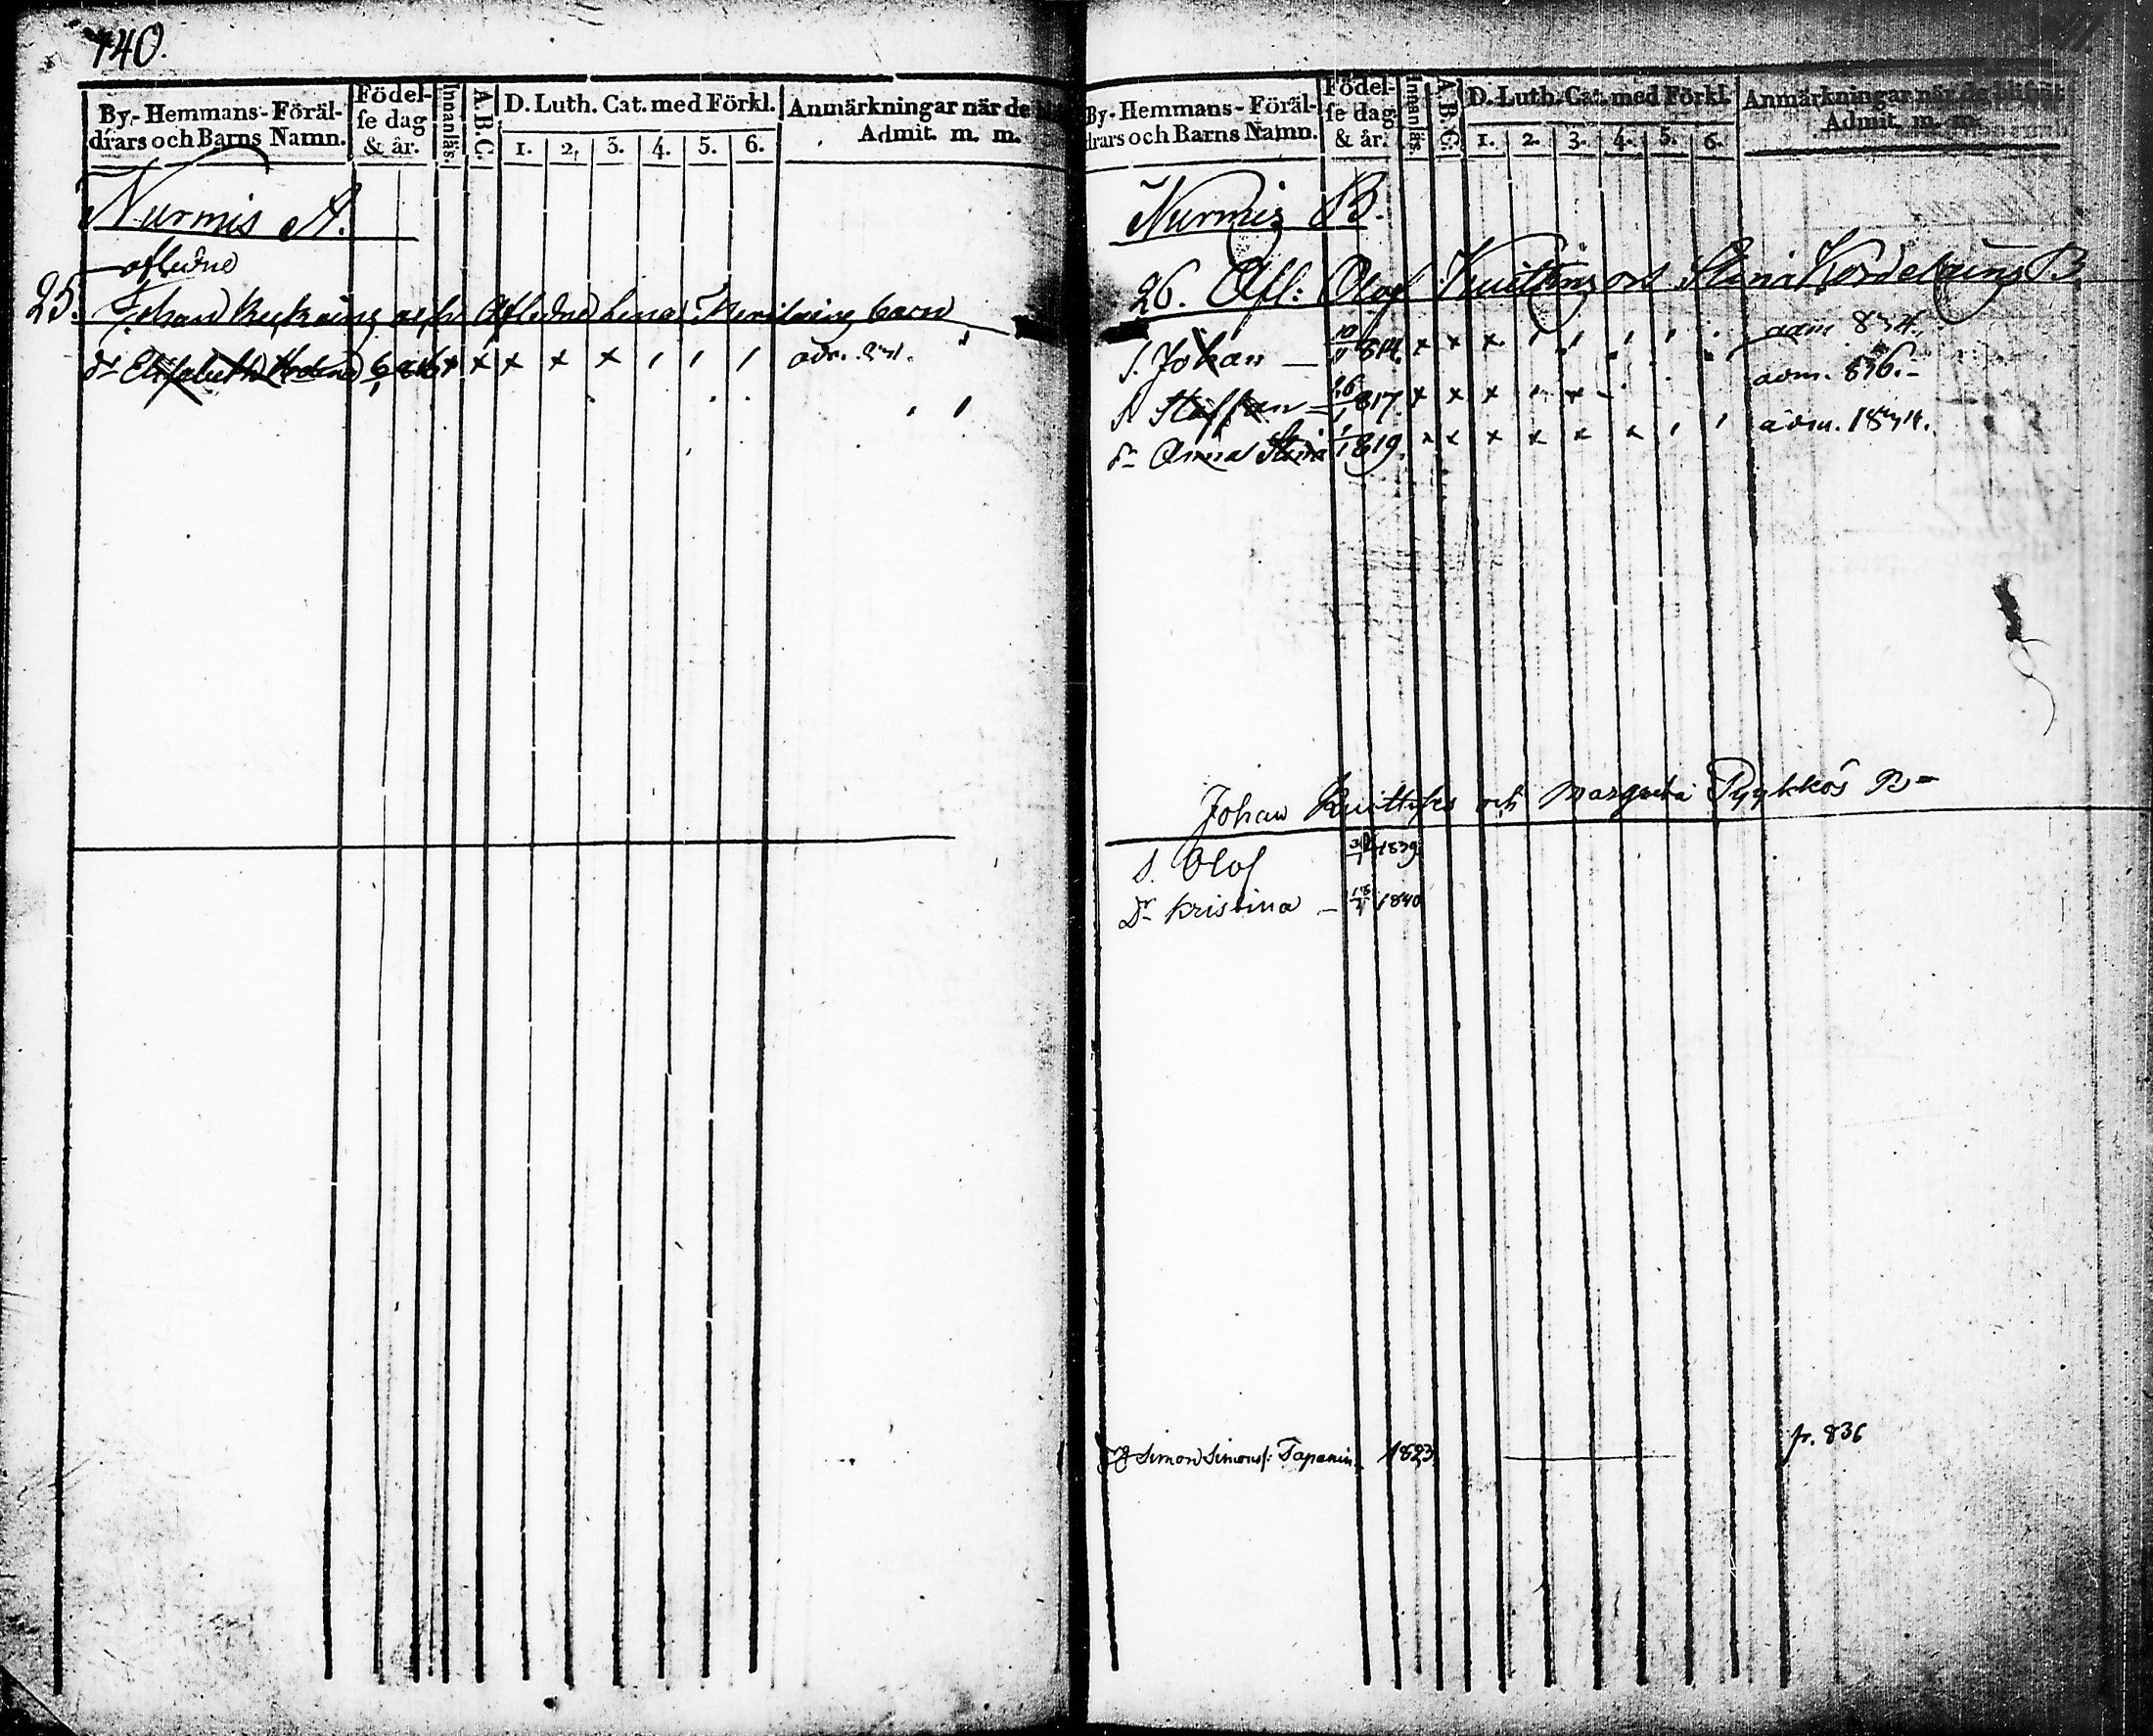 140.
By,- Hemmans- Föräl-
drars och Barns Namn.
Födel-
ſe dag
& år.
Innanläs.
A.B.C.
D. Luth. Cat. med Förkl.
1. 2. 3. 4. 5. 6.
Anmärkningar när de
Admit. m. m.
Nurmis A.
afledne
25. Johan afledne Lena barn
dr Elisabeth x x x x
By,- Hemmans- Föräl-
drars och Barns Namn.
Födel-
ſe dag
& år.
Innanläs.
A.B.C.
D. Luth. Cat. med Förkl.
1. 2. 3. 4. 5. 6.
Anmärkningar när de blifvit
Admit. m. m.
Nurmis B.
26. Afl: Olof och Stina B.
S. Johan — 814. x x x adm 834.
S Staffan — 16/1 817. x x x adm. 836.-
dr Anna Stina 1/1 819. x x x x x x adm. 1834.
Johan och Margreta Pyykkös B-
S. Olof 1839
Dr Kristina — 1840
Simon Simonss: Tapanin 1823 fr. 836